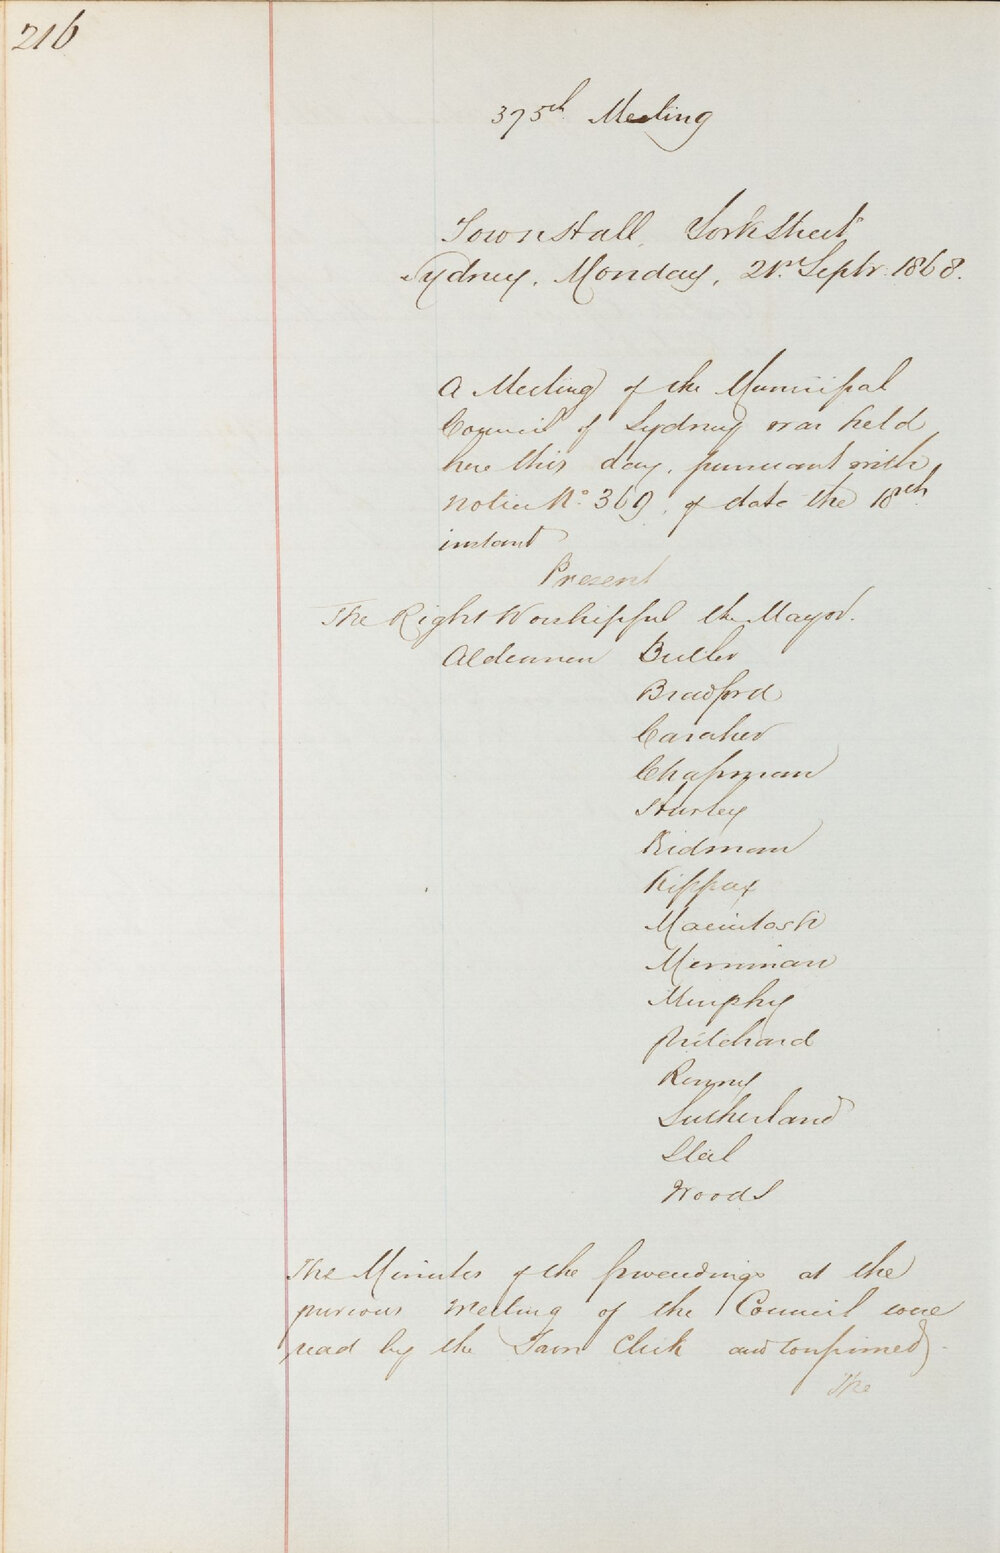 216
375th Meeting
Town Hall, York Street
Sydney, Monday, 21st Septr. 1868.
A Meeting of the Municipal
Council of Sydney was held
here this day, pursuant with
notice No. 369, of date the 18th
instant
Present
The Right Worshipful the Mayor.
Aldermen Butler
Bradford
Caraher
Chapman
Hurley
Kidman
Kippax
Macintosh
Merriman
Murphy
Pritchard
Renny
Sutherland
Steel
Woods
The Minutes of the proceedings at the
previous meeting of the Council were
read by the Town Clerk and confirmed.
The